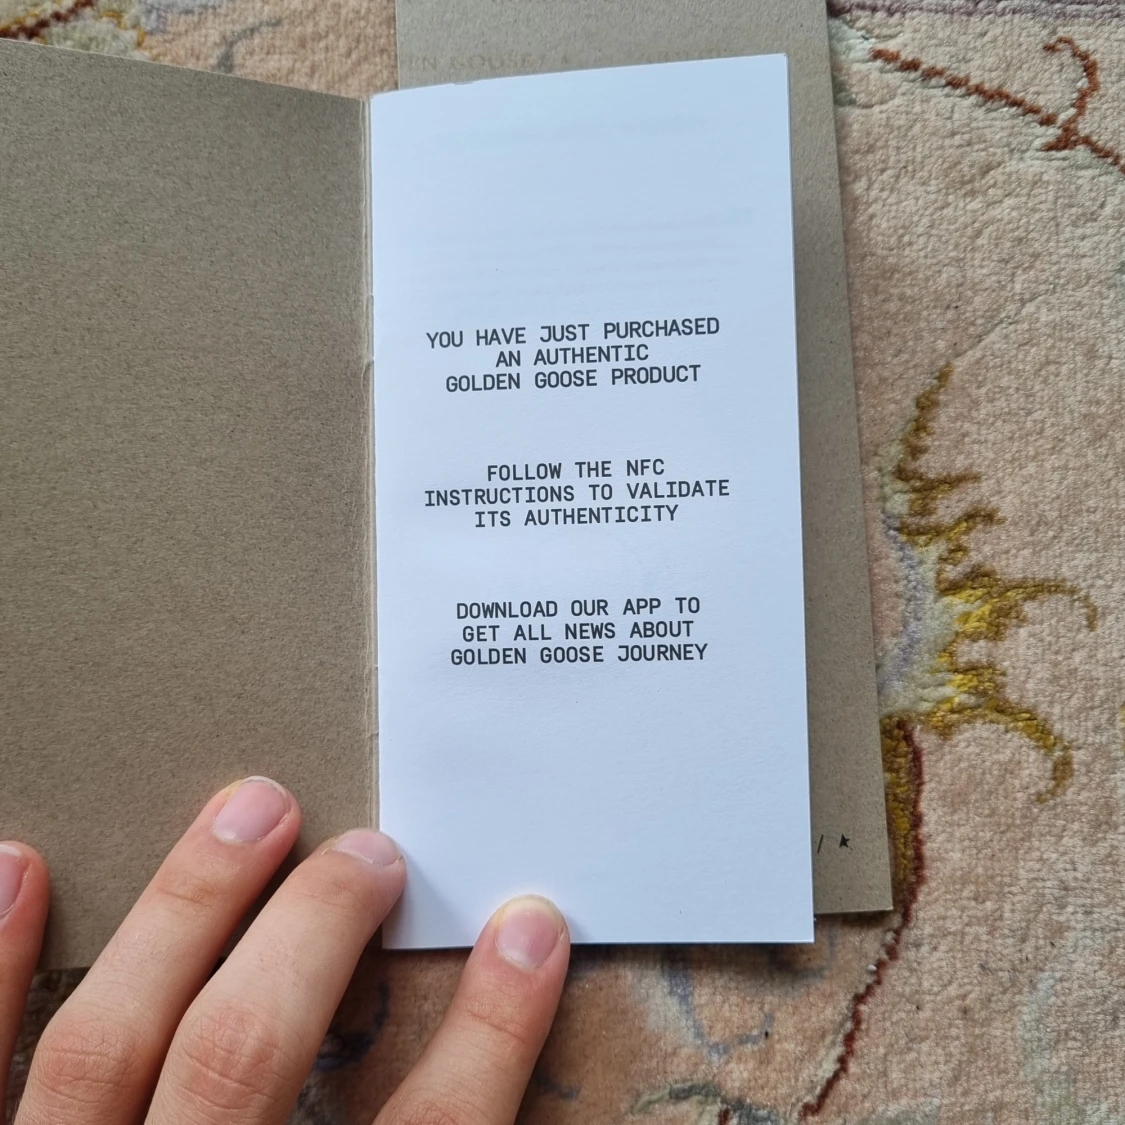 GOOSE
YOU HAVE JUST PURCHASED
AN AUTHENTIC
GOLDEN GOOSE PRODUCT
FOLLOW THE NFC
INSTRUCTIONS TO VALIDATE
ITS AUTHENTICITY
DOWNLOAD OUR APP TO
GET ALL NEWS ABOUT
GOLDEN GOOSE JOURNEY